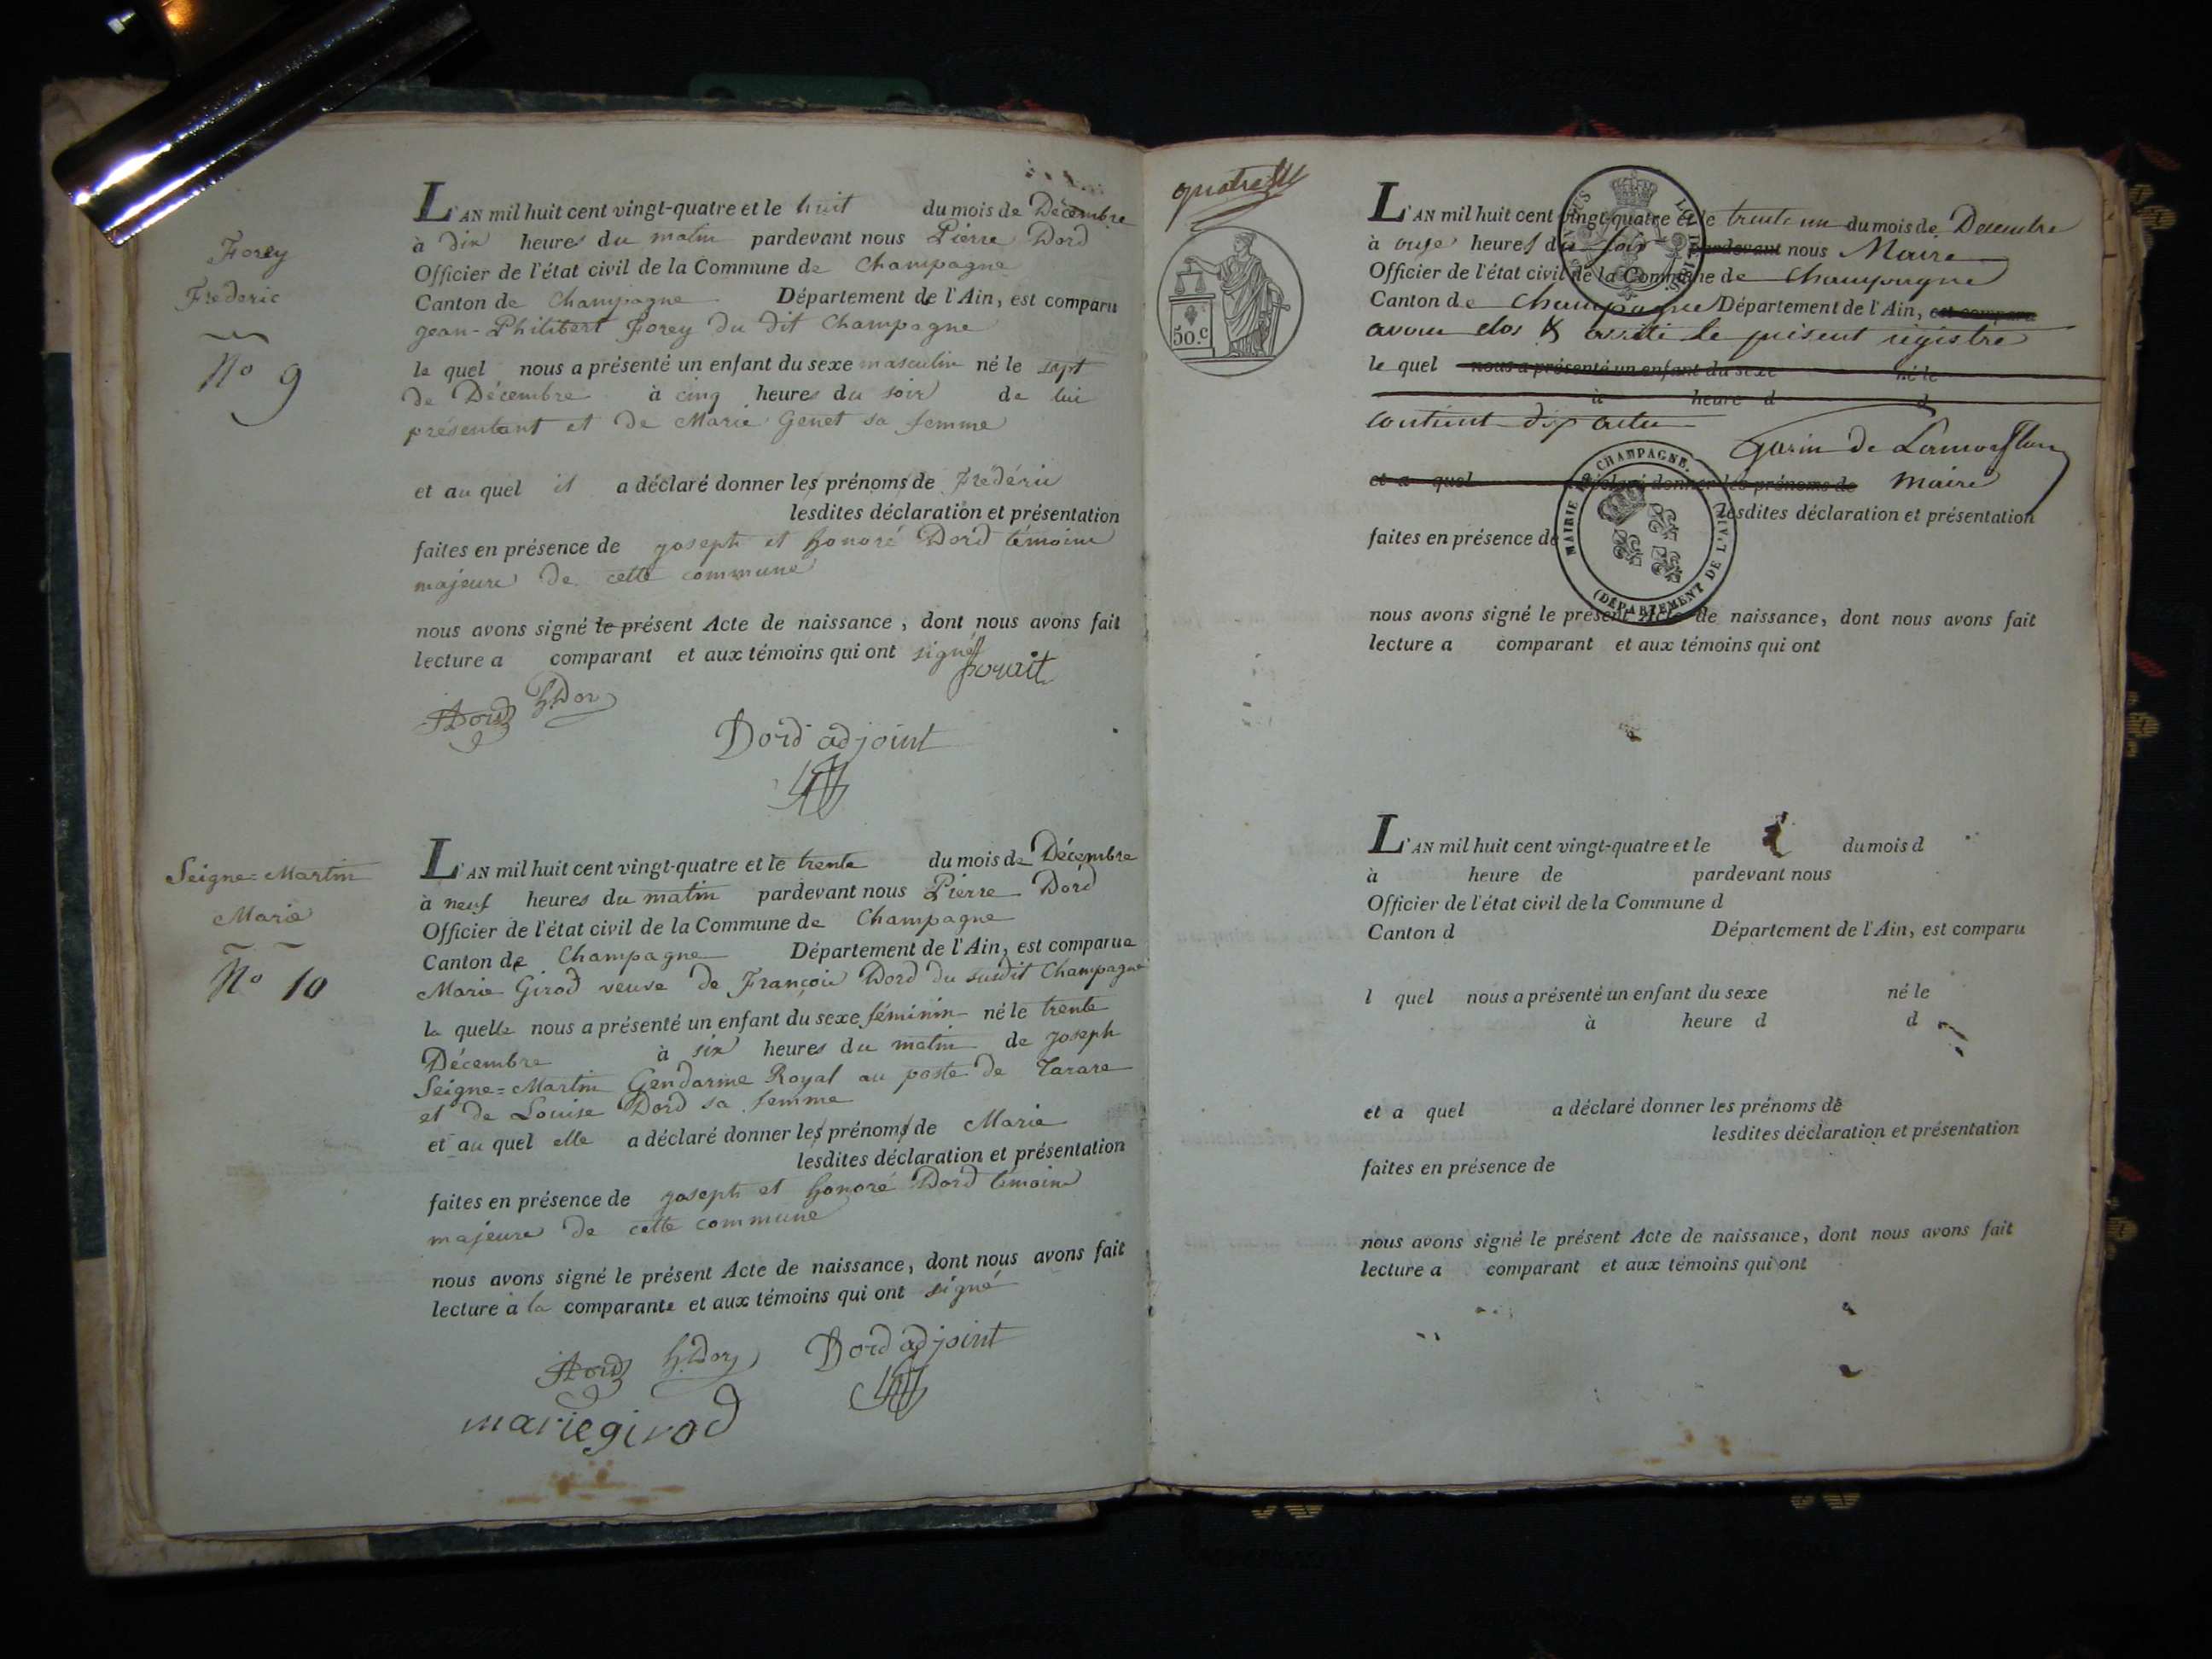 Forey
Frederic
No 9
L'AN mil huit cent vingt-quatre et le huit du mois de Décembre
à dix heures du matin pardevant nous Pierre Dord
Officier de l'état civil de la Commune de Champagne
Canton de Champagne Département de l'Ain, est comparu
jean-Philibert Forey du dit Champagne
le quel nous a présenté un enfant du sexe masculin né le sept
de Décembre à cinq heures du soir de lui
présentant et de Marie Genet sa femme
et au quel il a déclaré donner les prénoms de Frédéric
lesdites déclaration et présentation
faites en présence de joseph et honoré Dord témoins
majeurs de cette commune
nous avons signé le présent Acte de naissance, dont nous avons fait
lecture a comparant et aux témoins qui ont signé
JDord h.Dord
Dord adjoint
Seigne=Martin
Marie
No 10
L'AN mil huit cent vingt-quatre et le trente du mois de Décembre
à neuf heures du matin pardevant nous Pierre Dord
Officier de l'état civil de la Commune de Champagne
Canton de Champagne Département de l'Ain, est comparue
Marie Girod veuve de François Dord du susdit Champagne
la quelle nous a présenté un enfant du sexe féminin né le trente
Décembre à six heures du matin de joseph
Seigne=Martin Gendarme Royal au poste de Tarare
et de Louise Dord sa femme
et au quel elle a déclaré donner les prénoms de Marie
lesdites déclaration et présentation
faites en présence de joseph et honoré Dord témoins
majeurs de cette commune
nous avons signé le présent Acte de naissance, dont nous avons fait
lecture à la comparante et aux témoins qui ont signé
JDord h.Dord Dord adjoint
mariegirod
50.c
L'AN mil huit cent vingt-quatre et le trente un du mois de Decembre
à onze heures du soir pardevant nous Maire
Officier de l'état civil de la Commune de Champagne
Canton de Champagne Département de l'Ain, est comparu
avons clos & arrêté le présent registre
le quel nous a présenté un enfant du sexe né le
à heure d d
contient dix actes
Garin de
et a quel déclaré donner les prénoms de Maire
MARIE DE CHAMPAGNE.
(DÉPARTEMENT DE L'AIN)
lesdites déclaration et présentation
faites en présence de
nous avons signé le présent Acte de naissance, dont nous avons fait
lecture a comparant et aux témoins qui ont
L'AN mil huit cent vingt-quatre et le du mois d
à heure de pardevant nous
Officier de l'état civil de la Commune d
Canton d Département de l'Ain, est comparu
l quel nous a présenté un enfant du sexe né le
à heure d d
et a quel a déclaré donner les prénoms de
lesdites déclaration et présentation
faites en présence de
nous avons signé le présent Acte de naissance, dont nous avons fait
lecture a comparant et aux témoins qui ont